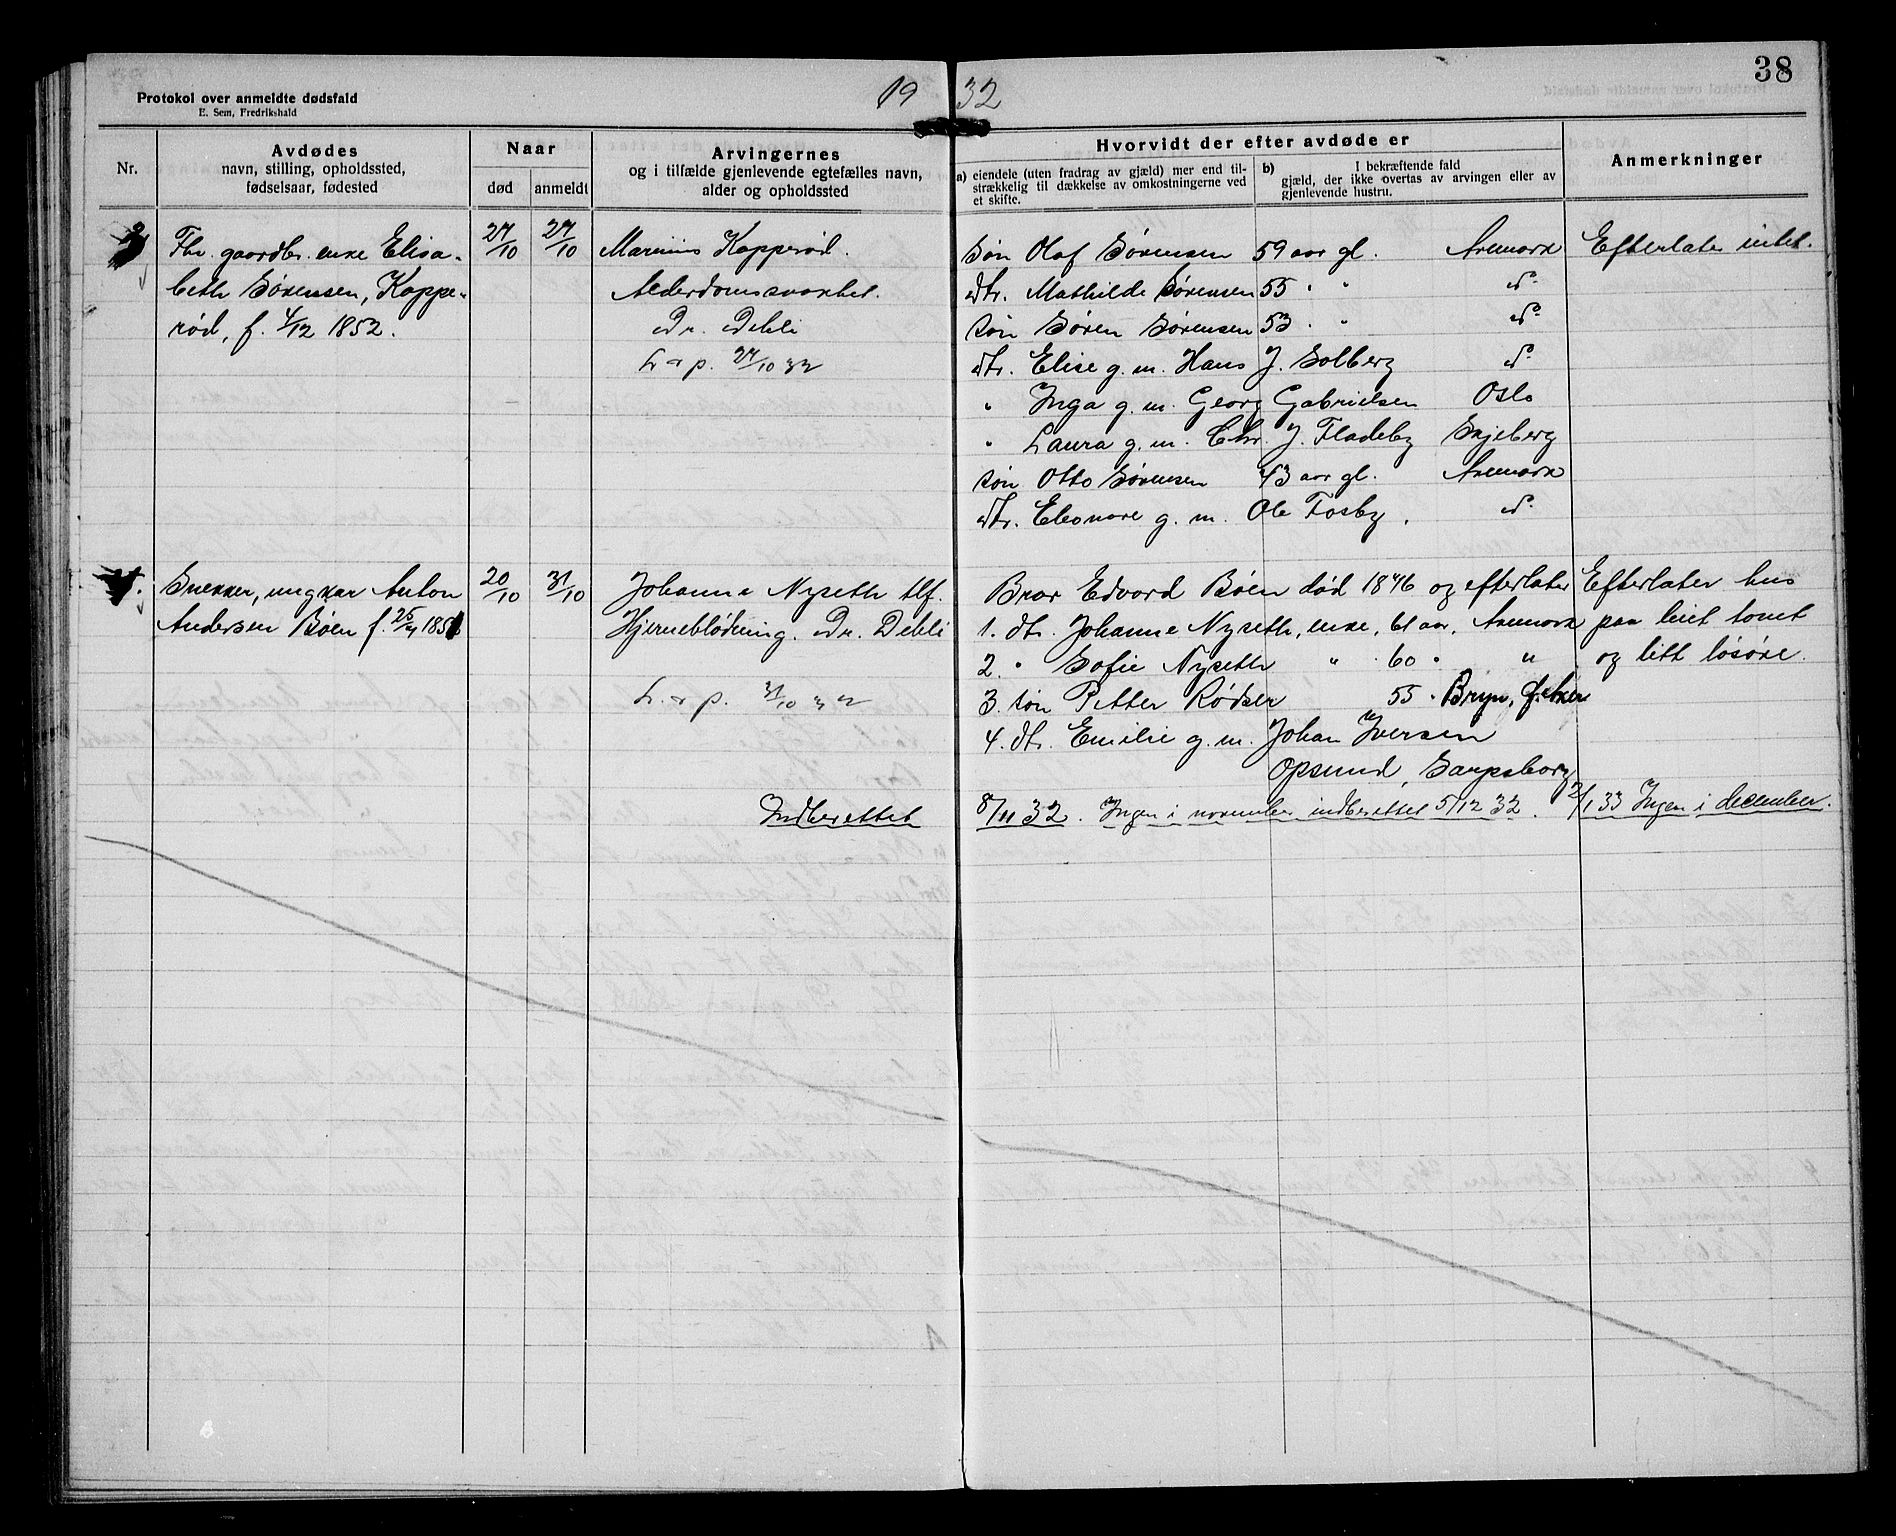 38
19 32
Protokol over anmeldte dødsfald
E. Sem, Fredrikshald
Nr.
Avdødes
navn, stilling, opholdssted,
fødselsaar, fødested
Naar
død
anmeldt
Arvingernes
og i tilfælde gjenlevende egtefælles navn,
alder og opholdssted
Hvorvidt der efter avdøde er
a) eiendele (uten fradrag av gjæld) mer end til-
strækkelig til dækkelse av omkostningerne ved
et skifte.
b) I bekræftende fald
gjæld, der ikke overtas av arvingen eller av
gjenlevende hustru.
Anmerkninger
Fhv. gaardbr. enke Elisa-
beth Sørensen, Koppe-
rød, f. 4/12 1852.
27/10
27/10
Marinius Kopperød.
Alderdomssvakhet.
Dr. Dehli
L & p. 27/10 32
søn Olaf Sørensen 59 aar gl. Aremark
dtr. Mathilde Sørensen 55 " " do
søn Søren Sørensen 53 " " do
dtr. Elise g. m. Hans J. Solberg do
" Inga g. m. Georg Gabrielsen Oslo
" Laura g. m. Chr. J. Fladeby Skjeberg
søn Otto Sørensen 43 aar gl. Aremark
dtr. Eleonore g. m. Ole Fosby, do
Efterlater intet.
4.
Snekker, ungkar Anton
Andersen Bøen f. 25/4 185
20/10
31/10
Johanne Nyseth tlf.
Hjerneblødning. Dr. Dehli
L. & p. 31/10 32
Bror Edvard Bøen død 1876 og efterlater
1. dtr. Johanne Nyseth, enke, 61 aar, Aremark
2. " Sofie Nyseth " 60 " "
3. søn Petter Rødser 55 " Bryn,
4. dtr. Emilie g. m. Johan Iversen
Opsund, Sarpsborg
Efterlater hus
paa leiet tomt
og litt løsøre.
Indberettet 8/11 32. Ingen i november indberettet 5/12 32. 2/1 33 Ingen i december.